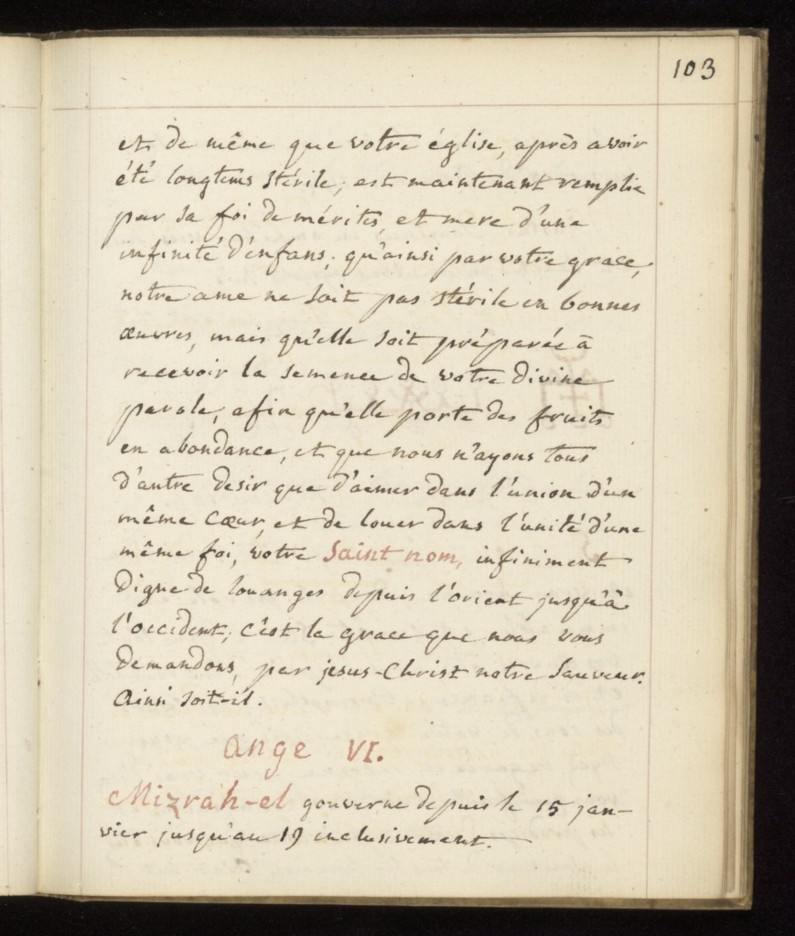 103
et de même que votre église, après avoir
été longtems stérile, est maintenant remplie
par sa foi de mérites, et mere d'une
infinité d'enfans; qu'ainsi par votre grace,
notre ame ne soit pas stérile en bonnes
œuvres, mais qu'elle soit préparée à
recevoir la semence de votre divine
parole, afin qu'elle porte des fruits
en abondance, et que nous n'ayons tous
d'autre desir que d'aimer dans l'union d'un
même cœur, et de louer dans l'unité d'une
même foi, votre Saint nom, infiniment
digne de louanges depuis l'orient jusqu'à
l'occident; c'est la grace que nous vous
demandons, par jesus-Christ notre Sauveur.
Ainsi soit-il.
Ange VI.
Mizrah-el gouverne depuis le 15 jan-
vier jusqu'au 19 inclusivement.